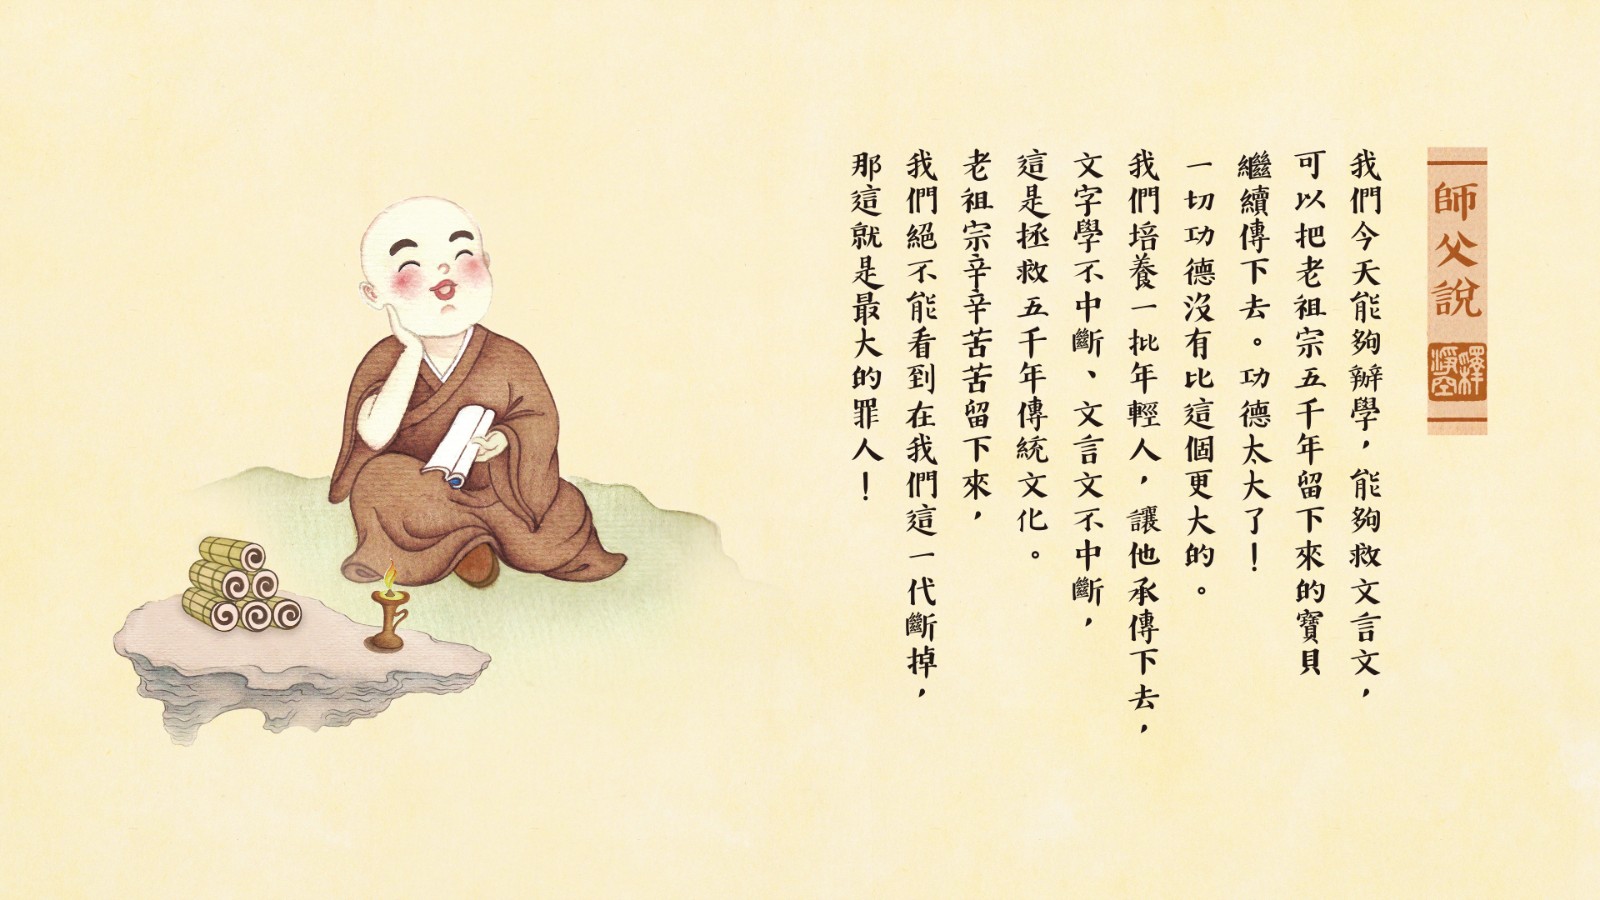 師父說
釋
淨空
我們今天能夠辦學，能夠救文言文，
可以把老祖宗五千年留下來的寶貝
繼續傳下去。功德太大了！
一切功德沒有比這個更大的。
我們培養一批年輕人，讓他承傳下去，
文字學不中斷、文言文不中斷，
這是拯救五千年傳統文化。
老祖宗辛辛苦苦留下來，
我們絕不能看到在我們這一代斷掉，
那這就是最大的罪人！